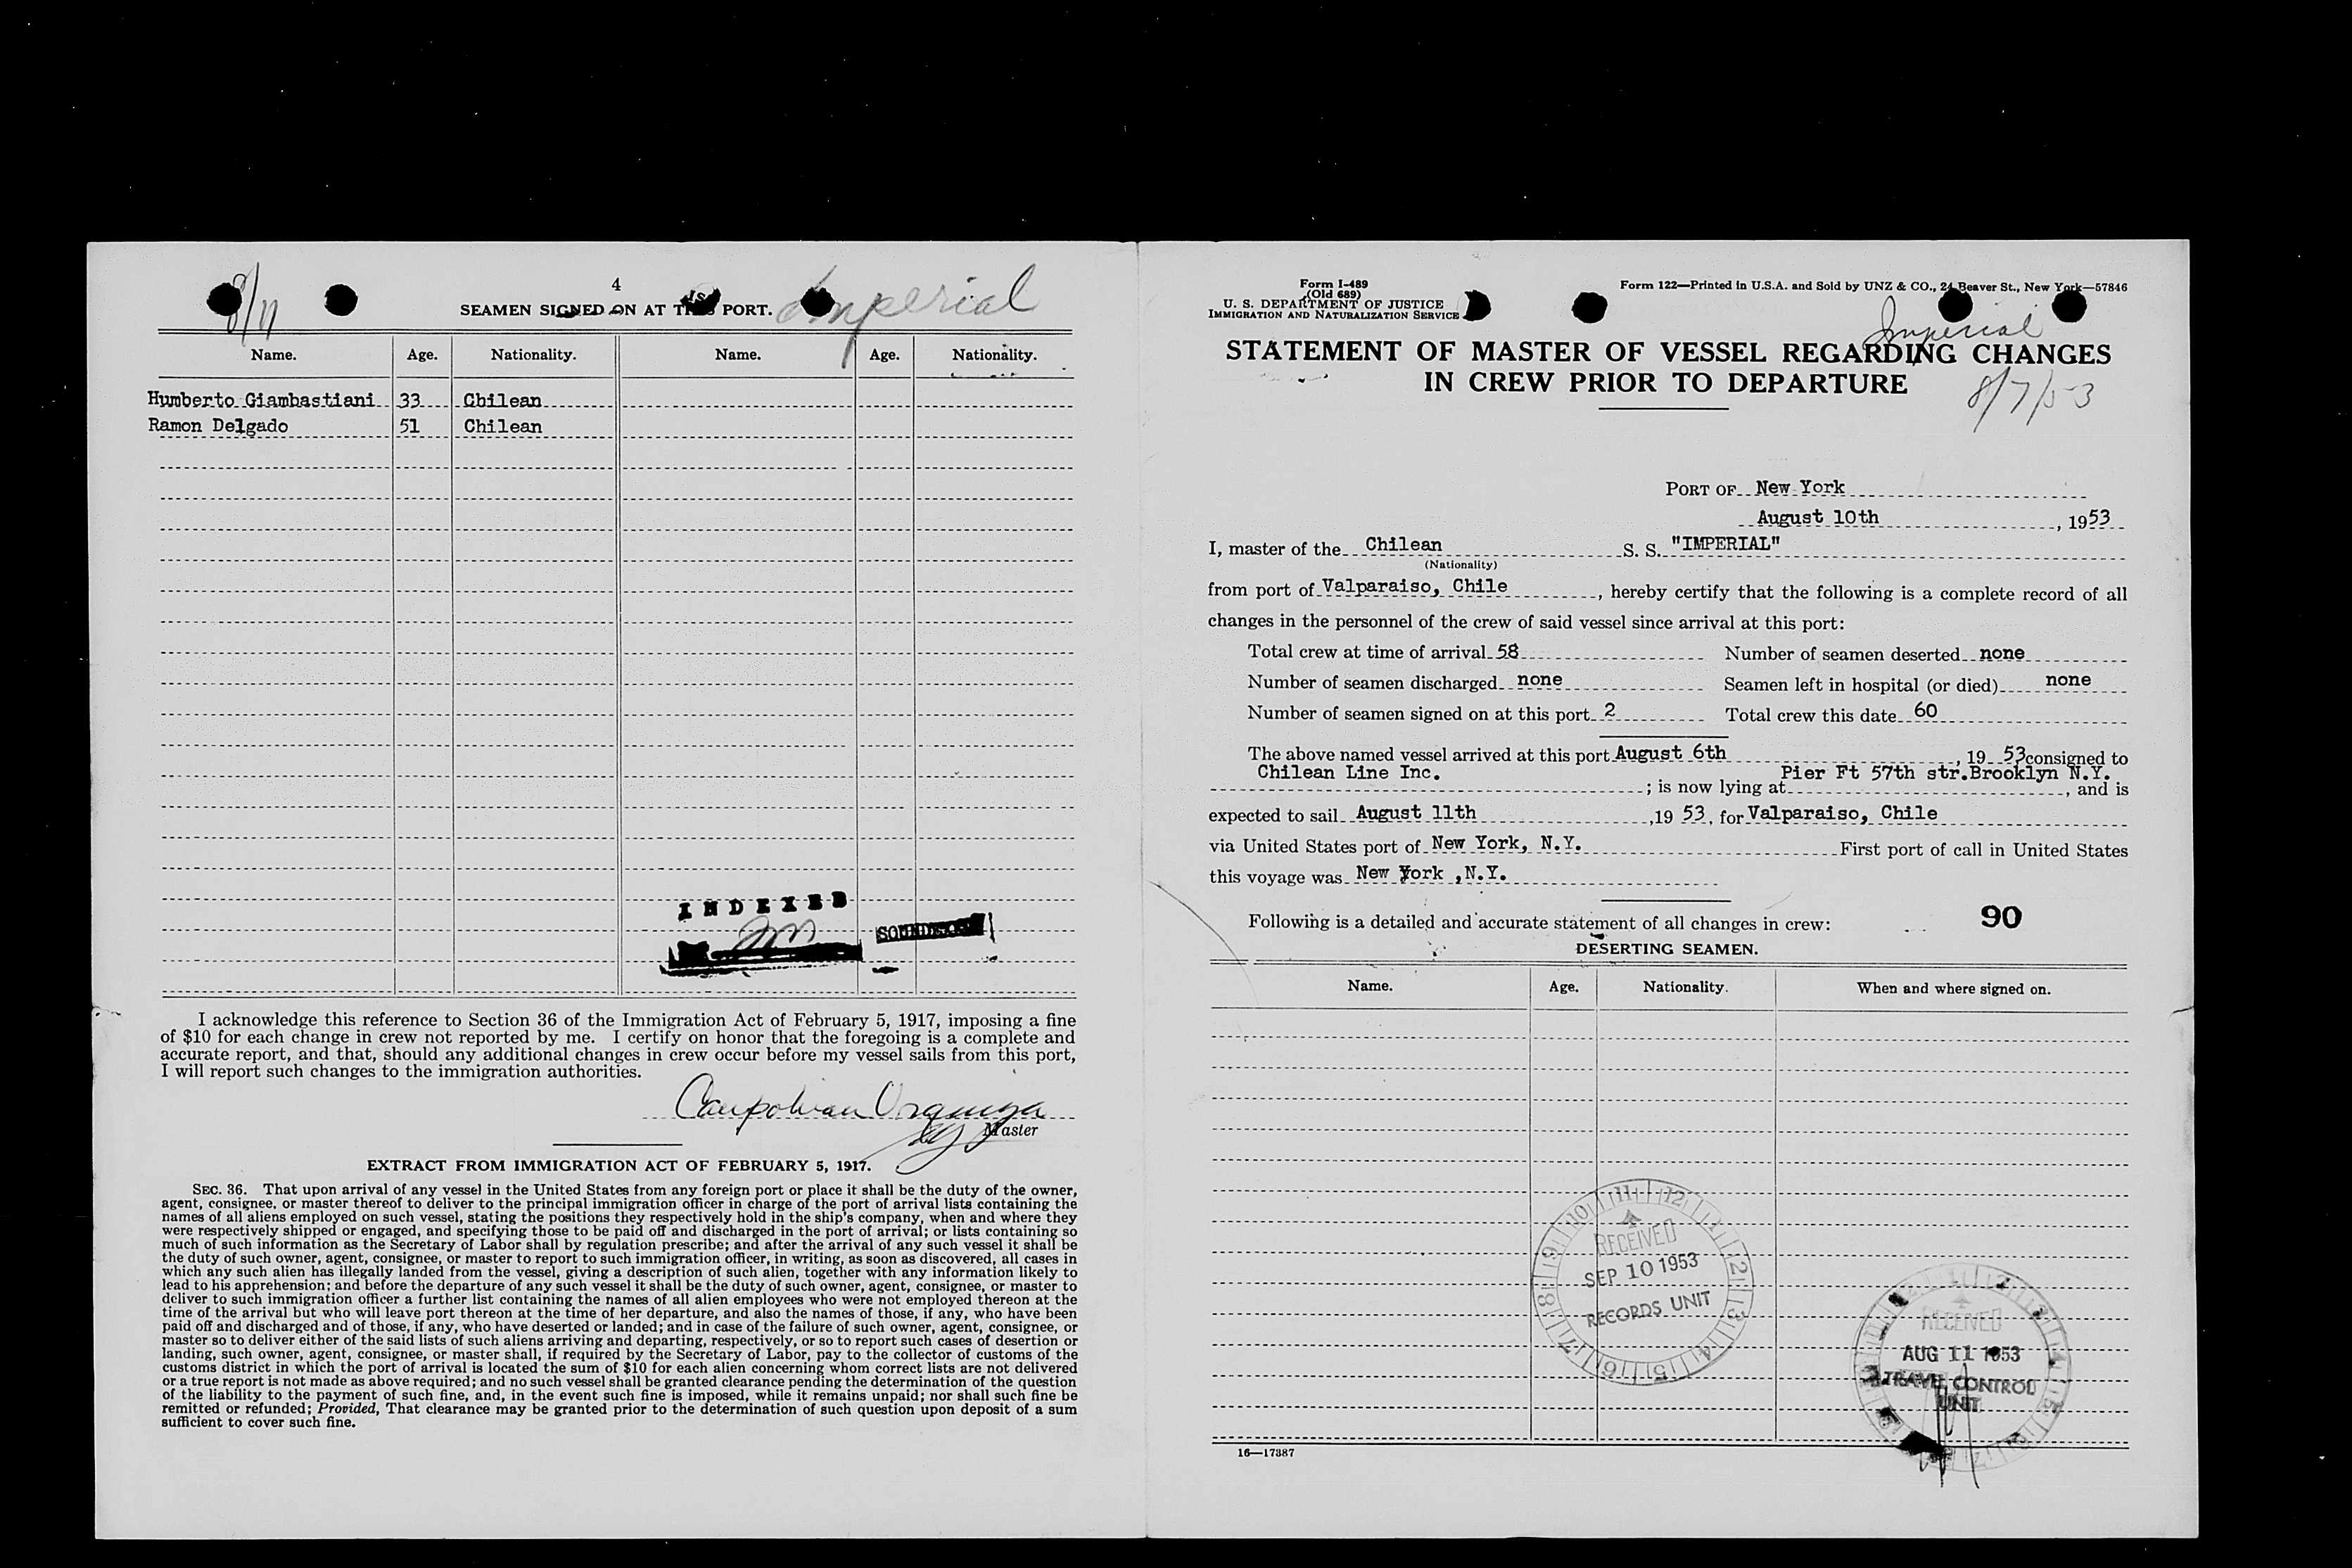 8/11
4
SEAMEN SIGNED ON AT THIS PORT.
Imperial
Name. Age. Nationality. Name. Age. Nationality.
Humberto Giambastiani 33 Chilean
Ramon Delgado 51 Chilean
INDEXED
I acknowledge this reference to Section 36 of the Immigration Act of February 5, 1917, imposing a fine
of $10 for each change in crew not reported by me. I certify on honor that the foregoing is a complete and
accurate report, and that, should any additional changes in crew occur before my vessel sails from this port,
I will report such changes to the immigration authorities.
Master
EXTRACT FROM IMMIGRATION ACT OF FEBRUARY 5, 1917.
SEC. 36. That upon arrival of any vessel in the United States from any foreign port or place it shall be the duty of the owner,
agent, consignee, or master thereof to deliver to the principal immigration officer in charge of the port of arrival lists containing the
names of all aliens employed on such vessel, stating the positions they respectively hold in the ship's company, when and where they
were respectively shipped or engaged, and specifying those to be paid off and discharged in the port of arrival; or lists containing so
much of such information as the Secretary of Labor shall by regulation prescribe; and after the arrival of any such vessel it shall be
the duty of such owner, agent, consignee, or master to report to such immigration officer, in writing, as soon as discovered, all cases in
which any such alien has illegally landed from the vessel, giving a description of such alien, together with any information likely to
lead to his apprehension; and before the departure of any such vessel it shall be the duty of such owner, agent, consignee, or master to
deliver to such immigration officer a further list containing the names of all alien employees who were not employed thereon at the
time of the arrival but who will leave port thereon at the time of her departure, and also the names of those, if any, who have been
paid off and discharged and of those, if any, who have deserted or landed; and in case of the failure of such owner, agent, consignee, or
master so to deliver either of the said lists of such aliens arriving and departing, respectively, or so to report such cases of desertion or
landing, such owner, agent, consignee, or master shall, if required by the Secretary of Labor, pay to the collector of customs of the
customs district in which the port of arrival is located the sum of $10 for each alien concerning whom correct lists are not delivered
or a true report is not made as above required; and no such vessel shall be granted clearance pending the determination of the question
of the liability to the payment of such fine, and, in the event such fine is imposed, while it remains unpaid; nor shall such fine be
remitted or refunded; Provided, That clearance may be granted prior to the determination of such question upon deposit of a sum
sufficient to cover such fine.
Form I-489
(Old 689)
U. S. DEPARTMENT OF JUSTICE
IMMIGRATION AND NATURALIZATION SERVICE
Form 122—Printed in U.S.A. and Sold by UNZ & CO., 24 Beaver St., New York—57846
Imperial
STATEMENT OF MASTER OF VESSEL REGARDING CHANGES
IN CREW PRIOR TO DEPARTURE
8/7/53
PORT OF New York
August 10th, 1953
I, master of the Chilean S. S. "IMPERIAL"
(Nationality)
from port of Valparaiso, Chile, hereby certify that the following is a complete record of all
changes in the personnel of the crew of said vessel since arrival at this port:
Total crew at time of arrival 58 Number of seamen deserted none
Number of seamen discharged none Seamen left in hospital (or died) none
Number of seamen signed on at this port 2 Total crew this date 60
The above named vessel arrived at this port August 6th, 19 53 consigned to
Chilean Line Inc.; is now lying at Pier Ft 57th str.Brooklyn N.Y., and is
expected to sail August 11th, 19 53, for Valparaiso, Chile
via United States port of New York, N.Y. First port of call in United States
this voyage was New York ,N.Y.
Following is a detailed and accurate statement of all changes in crew: 90
DESERTING SEAMEN.
Name. Age. Nationality. When and where signed on.
10 11 12 1 2 3 4 5 6 7 8 9
RECEIVED
SEP 10 1953
RECORDS UNIT
RECEIVED
AUG 11 1953
TRAVEL CONTROL
UNIT
16—17387